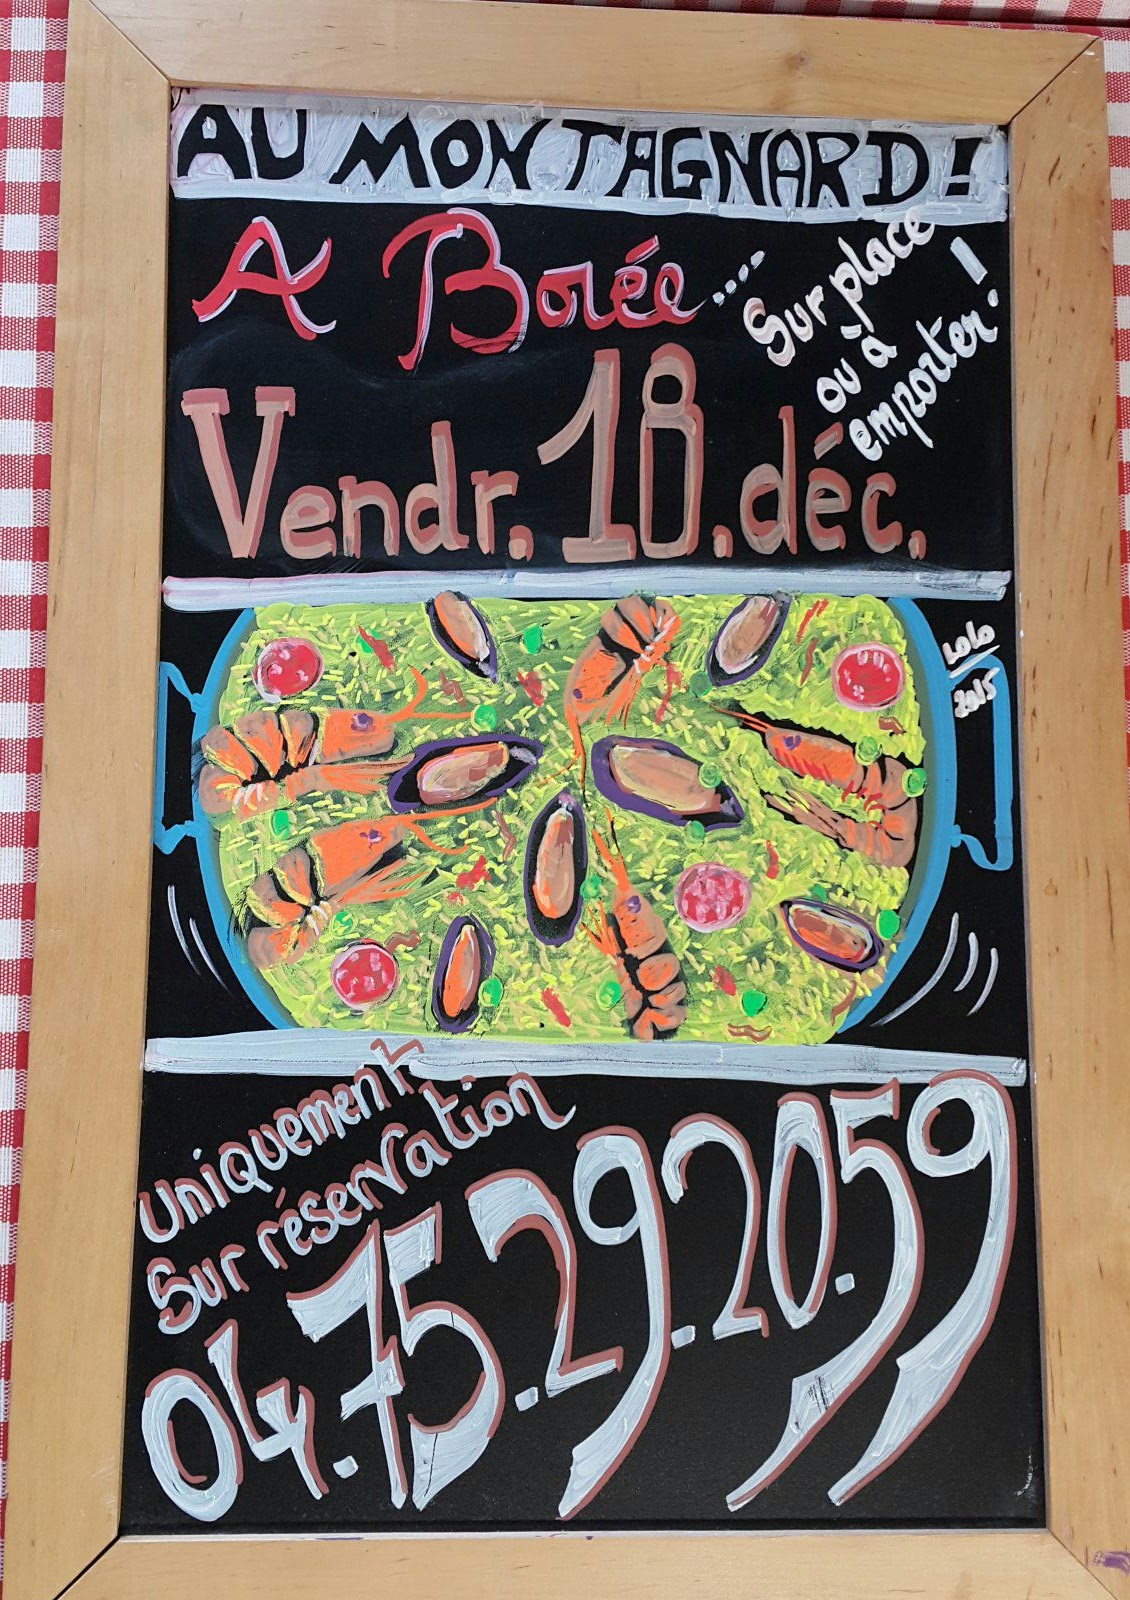 AU MONTAGNARD !
A Borée....
Sur place
ou à
emporter !
Vendr. 18. déc.
LOLO
2015
Uniquement
Sur réservation
04.75.29.20.59